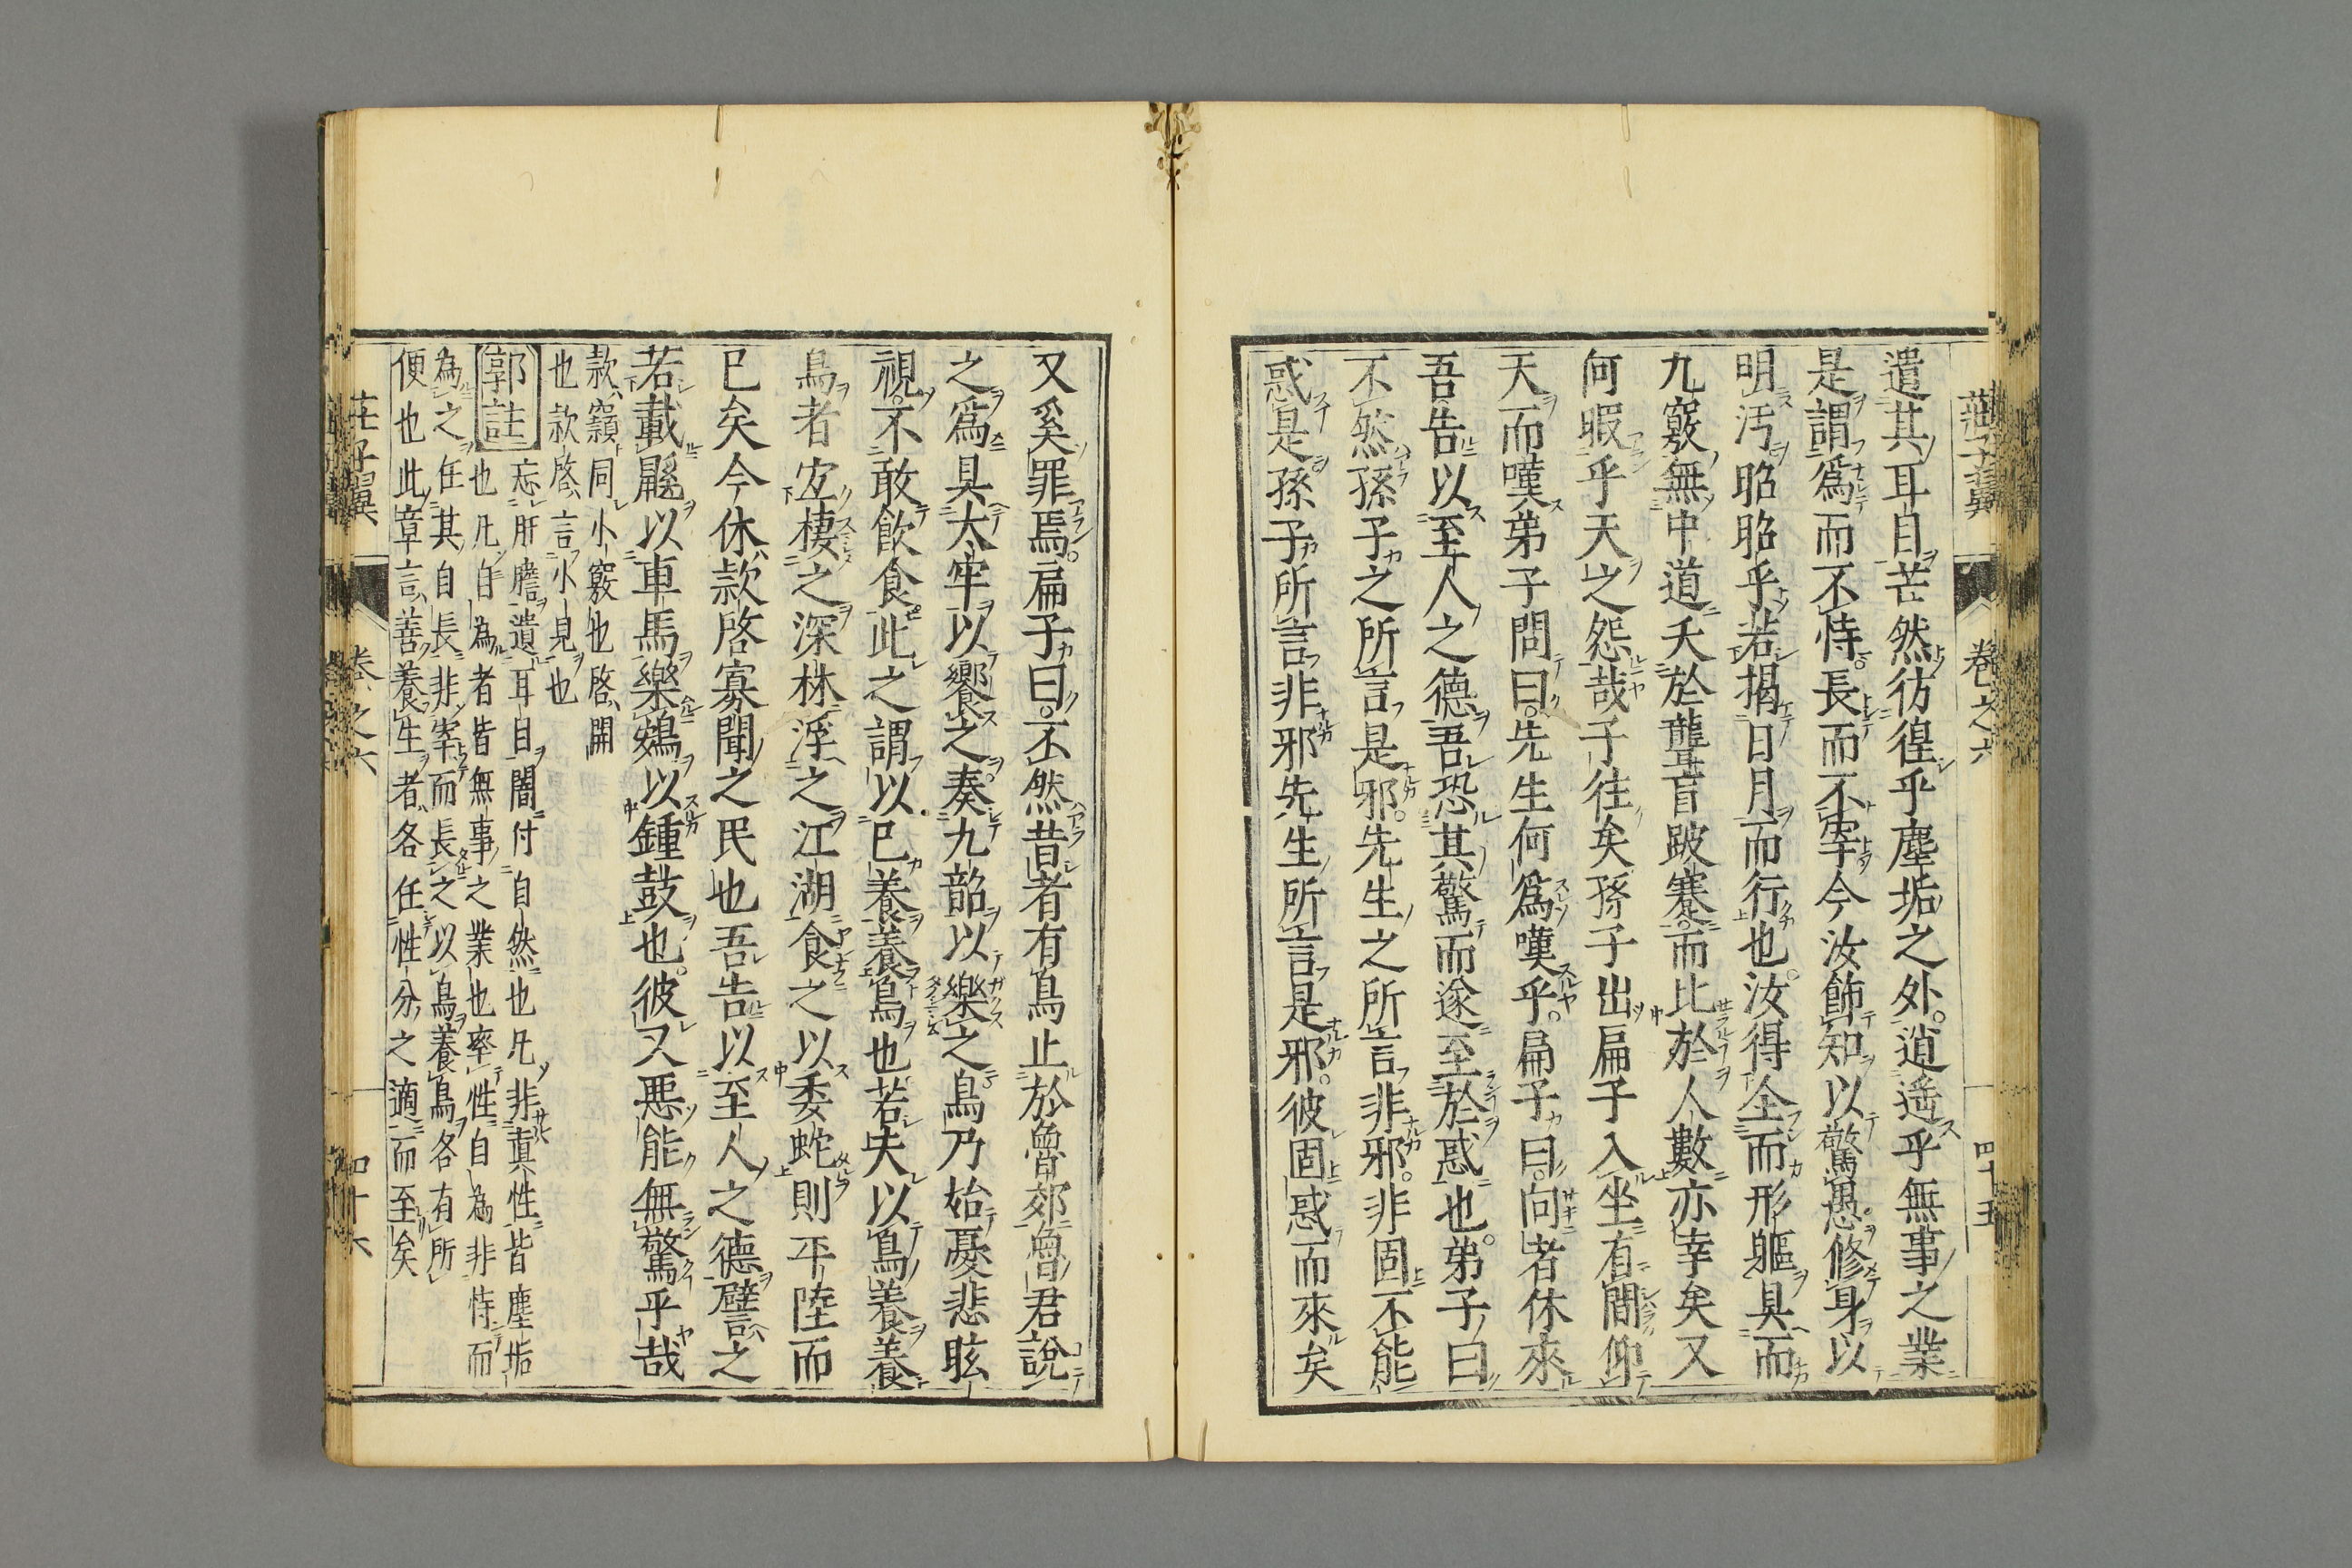 莊子翼 卷之六 四十五
遺其耳目芒然彷徨乎塵垢之外。逍遥乎無事之業
是謂爲而不恃。長而不宰今汝飾知以驚愚。修身以
明汚昭昭乎若揭日月而行也。汝得全而形軀具而
九竅無中道夭於聾盲跛蹇。而比於人數亦幸矣又
何暇乎天之怨哉子往矣孫子出扁子入坐有間仰
天而嘆弟子問曰。先生何爲嘆乎。扁子曰。向者休來
吾告以至人之德吾恐其驚而遂至於惑也。弟子曰
不然孫子之所言是邪。先生之所言非邪。非固不能
惑是。孫子所言非邪先生所言是邪。彼固惑而來矣
又奚罪焉。扁子曰。不然昔者有鳥止於魯郊魯君說
之爲具太牢以饗之。奏九韶以樂之鳥乃始憂悲眩
視。不敢飮食此之謂以已養養鳥也若夫以鳥養養
鳥者宜棲之深林浮之江湖食之以委蛇則平陸而
已矣今休欵啓寡聞之民也吾告以至人之德譬之
若載鼷以車馬樂鷃以鍾鼓也。彼又悪能無驚乎哉
欵、窾同小竅也啓、開
也欵啓、言小見也
郭註 忘肝膽遺耳目闇付自然也凡非眞性皆塵垢
也凡自為者皆無事之業也率性自為非恃而
為之任其自長非宰而長之以鳥養鳥各有所
便也此章言、善養生者、各任性分之適而至矣
莊子翼 卷之六 四十六